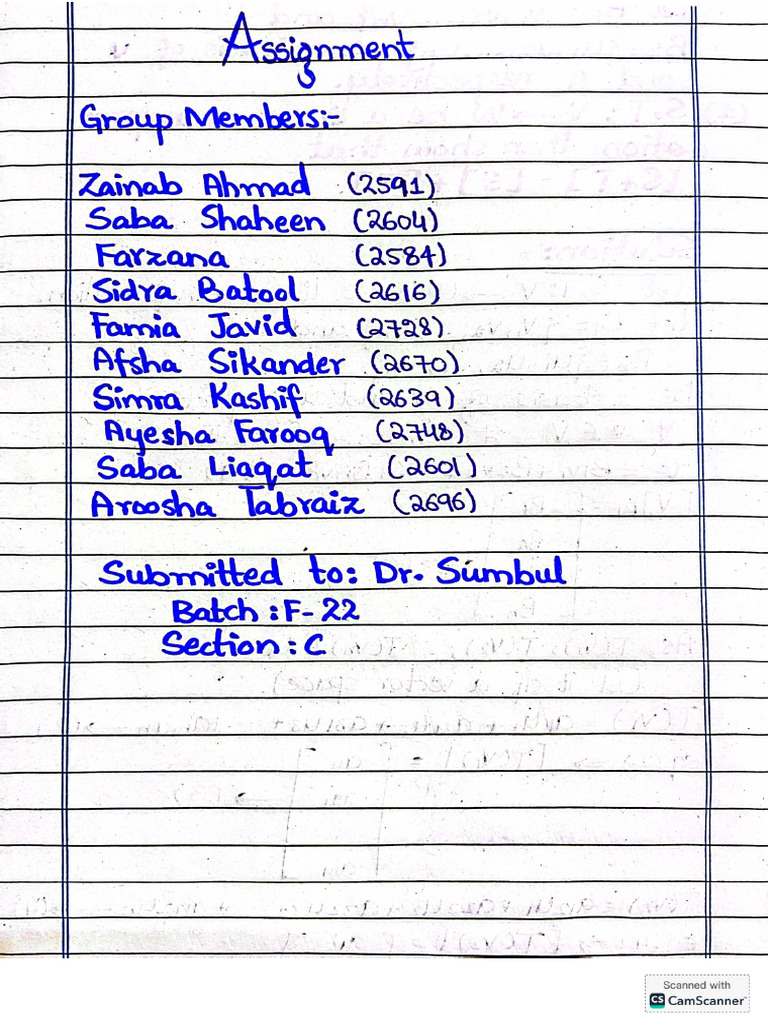 Assignment
Group Members:-
Zainab Ahmad (2591)
Saba Shaheen (2604)
Farzana (2584)
Sidra Batool (2616)
Famia Javid (2728)
Afsha Sikander (2670)
Simra Kashif (2639)
Ayesha Farooq (2748)
Saba Liaqat (2601)
Aroosha Tabraiz (2696)
Submitted to: Dr. Sumbul
Batch: F-22
Section: C
Scanned with
CS CamScanner